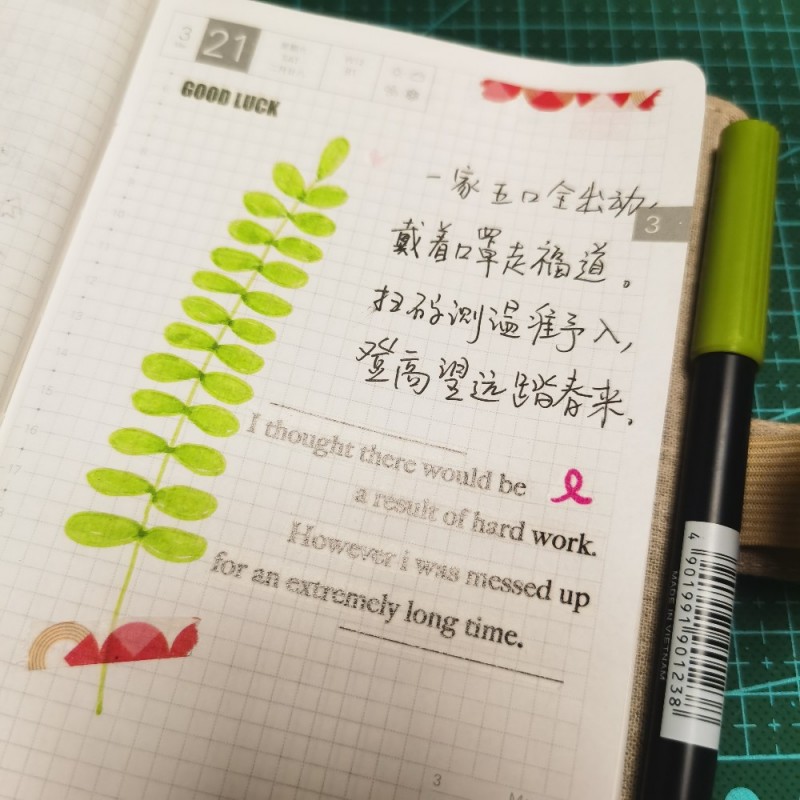 3
21
GOOD LUCK
一家五口全出动,
3
戴着口罩走福道。
扫码测温准予入,
登高望远踏春来.
I thought there would be
a result of hard work.
However i was messed up
for an extremely long time.
10
11
12
13
14
15
16
17
3
4901991901238
MADE IN VIETNAM